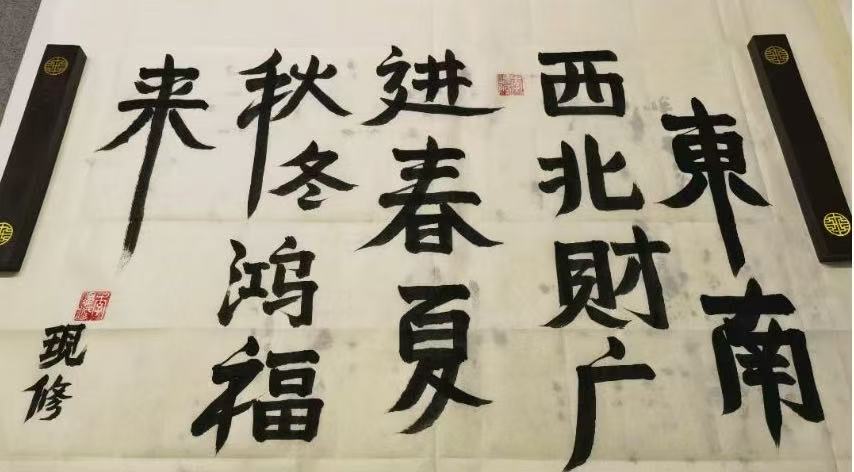 東南
西北財广
进春夏
秋冬鸿福
来
现修